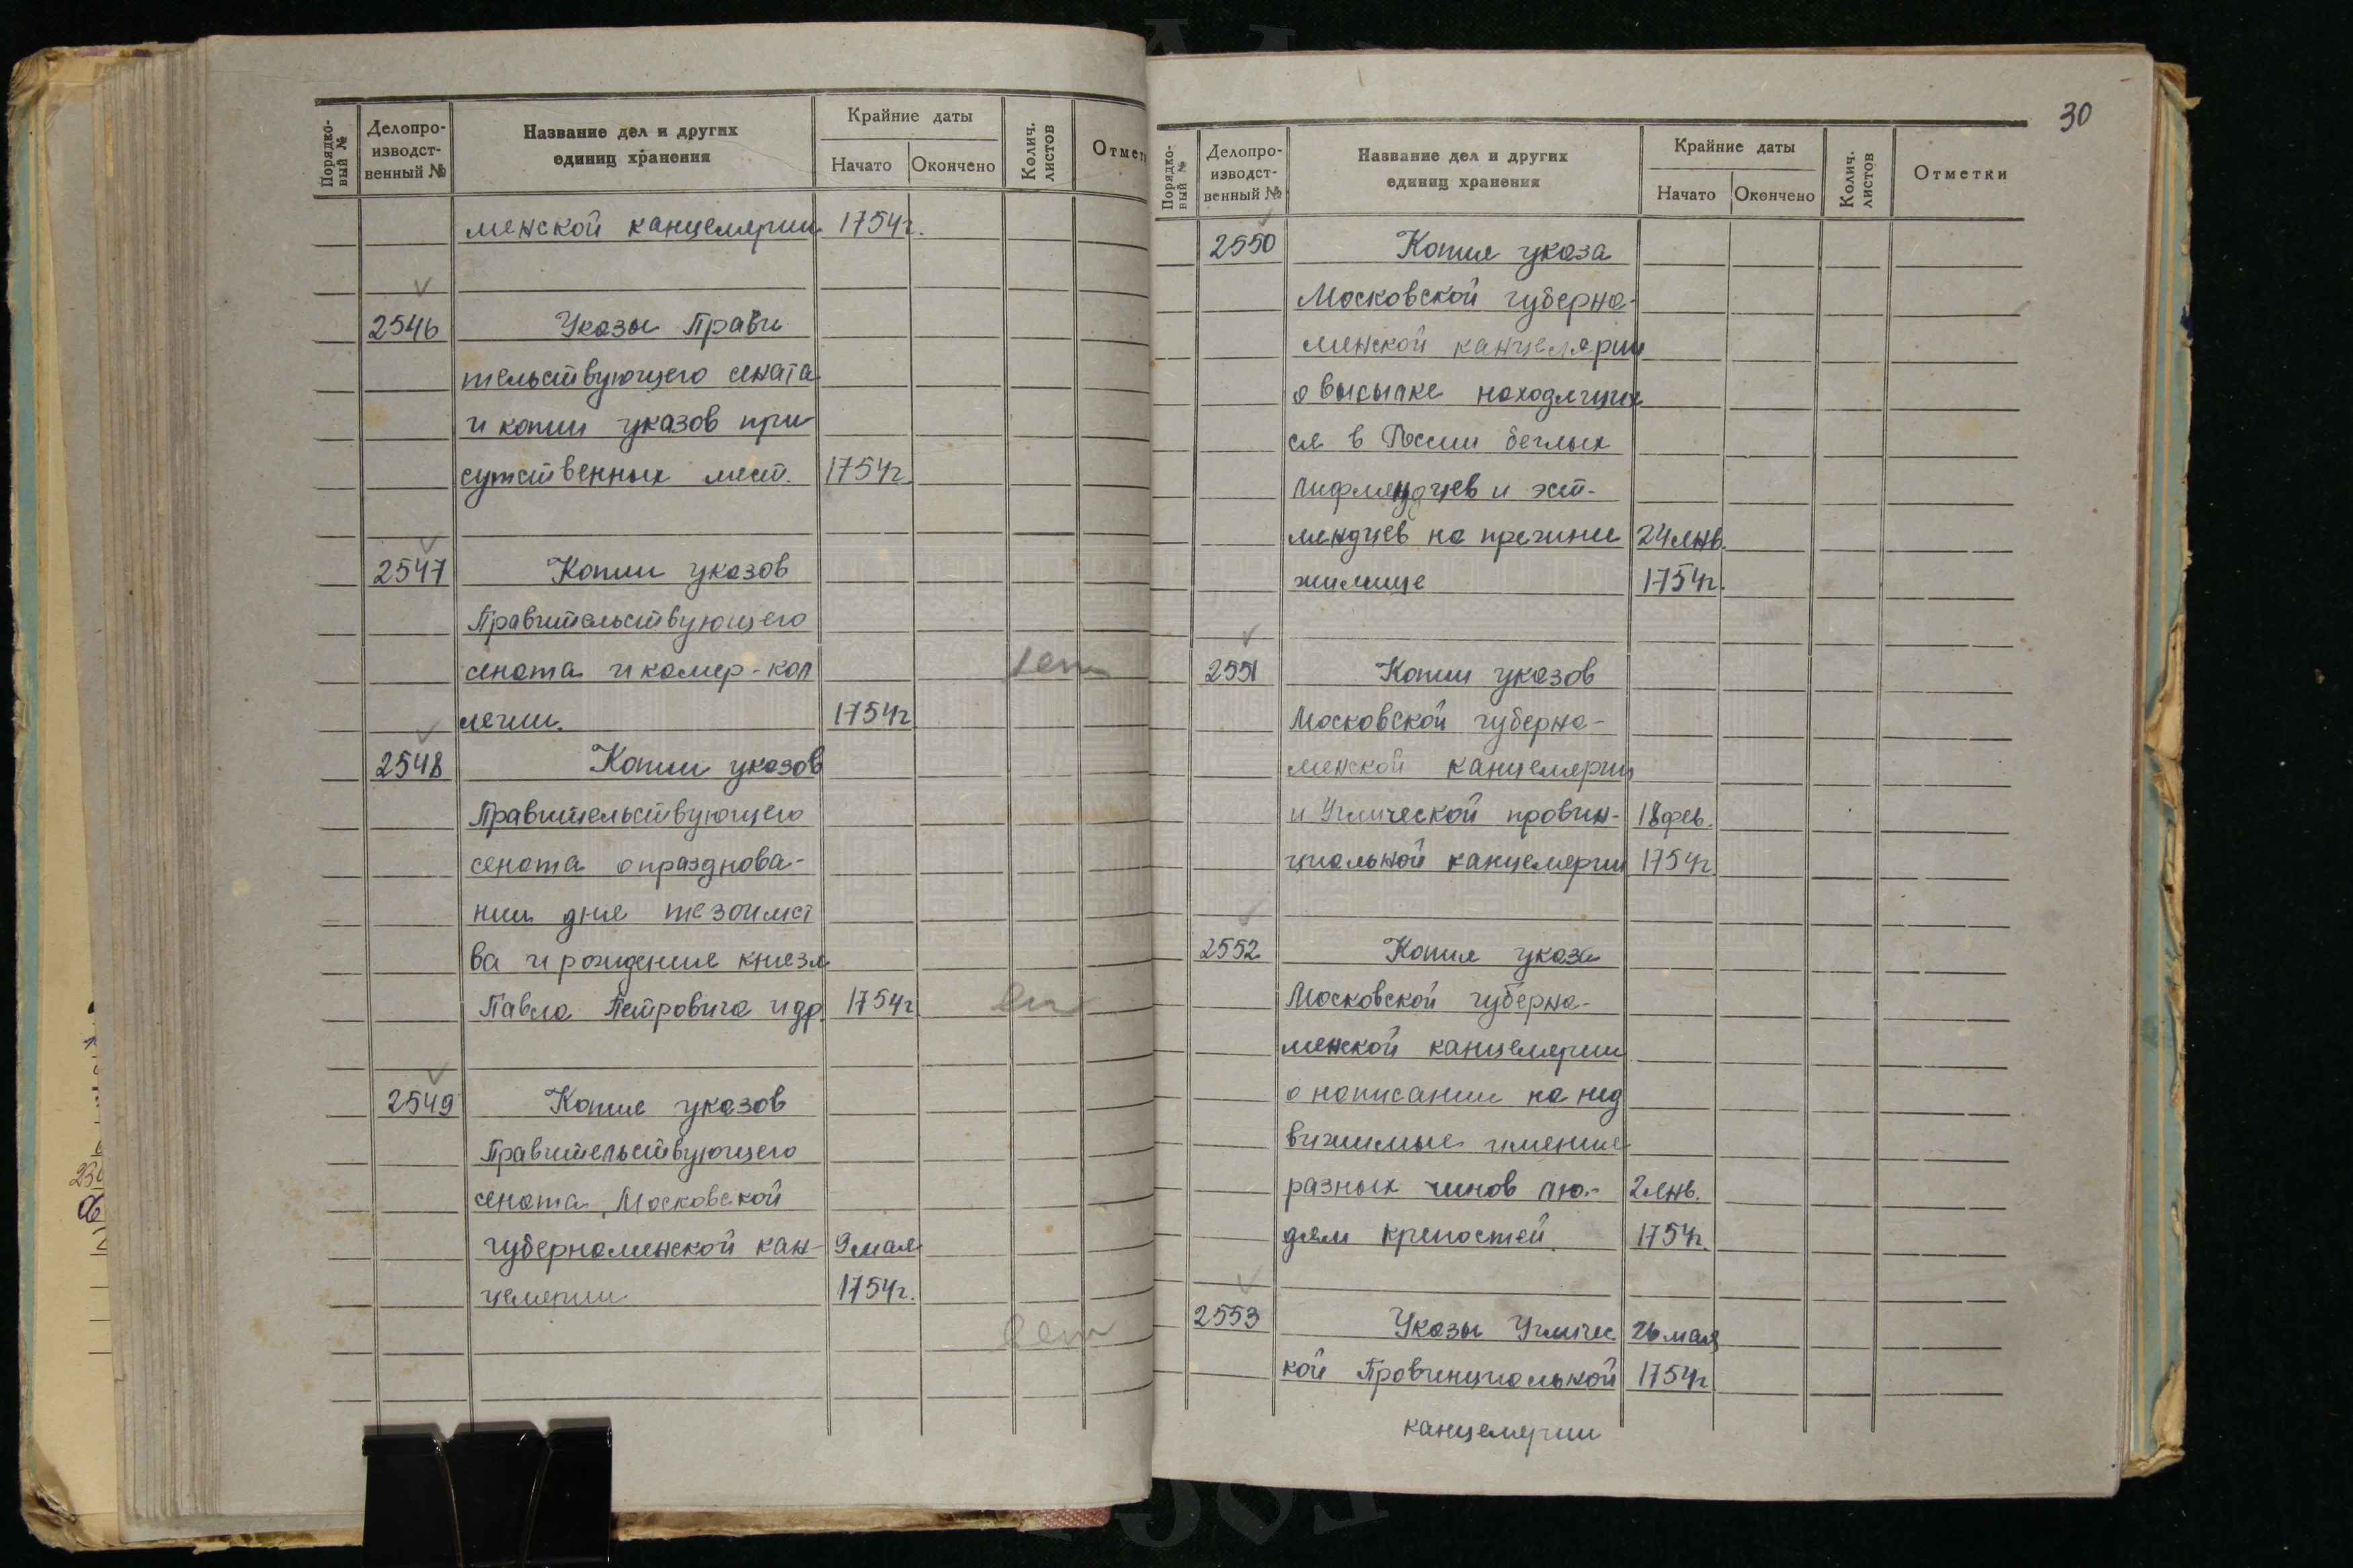 Порядко-
вый №
Делопро-
изводст-
венный №
Название дел и других
единиц хранения
Крайние даты
Начато
Окончено
Колич.
листов
Отмет
менской канцелярии 1754г.
2546 Указы Прави
тельствующего сената
и копии указов при
сутственных мест. 1754г.
2547 Копии указов
Правительствующего
сената и камер-кол
легии. 1754г
2548 Копии указов
Правительствующего
сената о празднова-
нии дня тезоимст
ва и рождение князя
Павла Петровича и др. 1754г
2549 Копие указов
Правительствующего
сената, Московской
губернаменской кан- 9 мая
целярии 1754г.
30
Порядко-
вый №
Делопро-
изводст-
венный №
Название дел и других
единиц хранения
Крайние даты
Начато
Окончено
Колич.
листов
Отметки
2550 Копия указа
Московской губерна-
менской канцелярии
о высылке находящих
ся в России беглых
лифляндцев и эст-
ляндцев на прежние 24 янв.
жилище 1754г.
2551 Копии указов
Московской губерна-
менской канцелярии
и Угличской провин- 18 фев.
циальной канцелярии 1754г
2552 Копия указа
Московской губерна-
менской канцелярии
о написании на нед
вижимые имение
разных чинов лю- 2 янв.
дям крепостей. 1754г.
2553 Указы Угличес 26 мая
кой Провинциальной 1754г
канцелярии